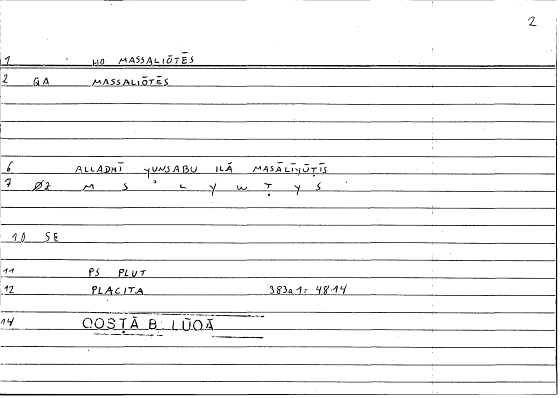 2
1 HO MASSALIŌTĒS
2 QA MASSALIŌTĒS
6 ALLADHĪ YUNSABU ILĀ MASĀLIYŪṬĪS
7 ØZ M S ° L Y W Ṭ Y S
10 SE
11 PS PLUT
12 PLACITA 383a1= 48 14
14 QOSṬĀ B. LŪQĀ